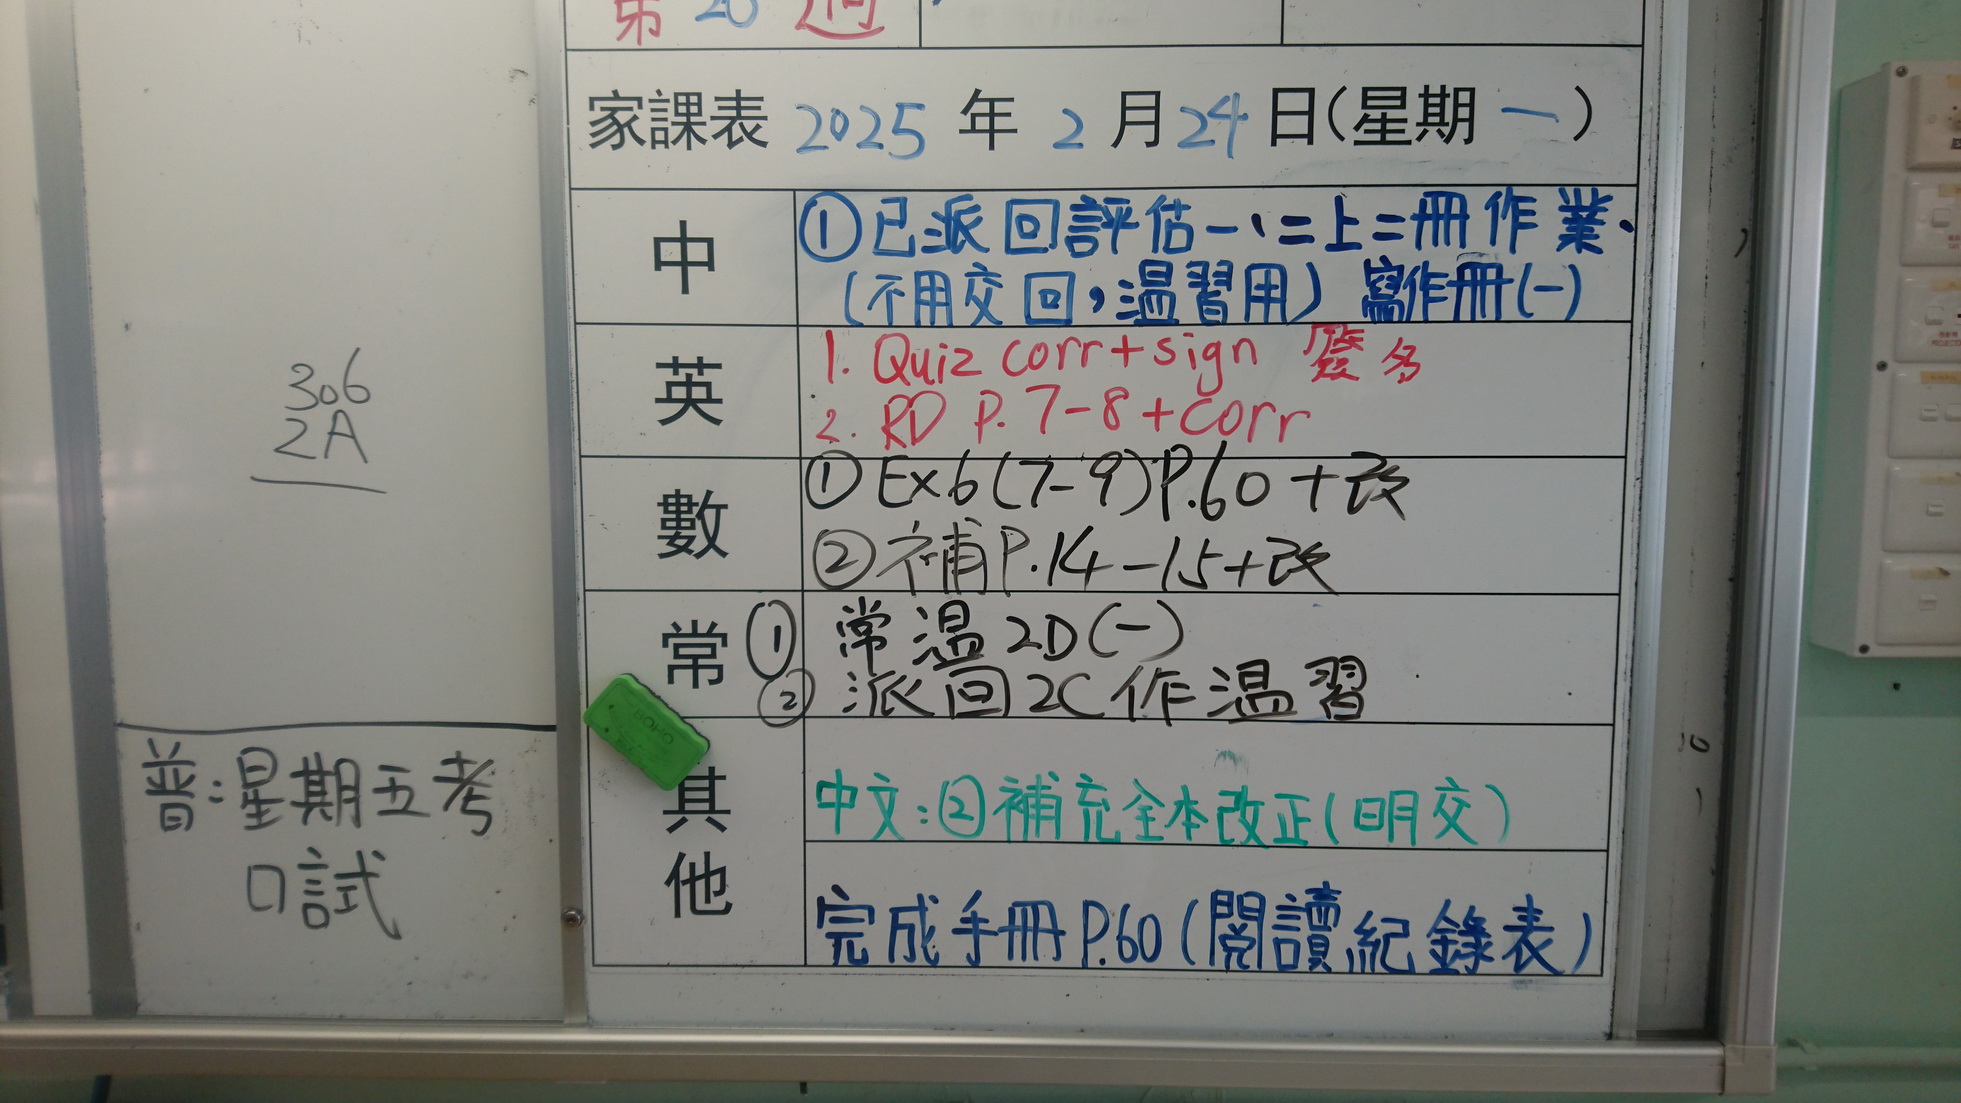 第 20 週
家課表 2025 年 2 月 24 日(星期 一)
中
①已派回評估一、二上二冊作業、
(不用交回，温習用) 寫作冊(一)
英
1. Quiz corr+sign
2. RD P. 7-8+corr
數
①Ex6(7-9)P.60+改
②補P.14-15+改
常
① 常温2D(一)
② 派回2C作温習
其他
中文:②補充全本改正(明交)
完成手冊P.60(閱讀紀錄表)
306
2A
普:星期五考
口試